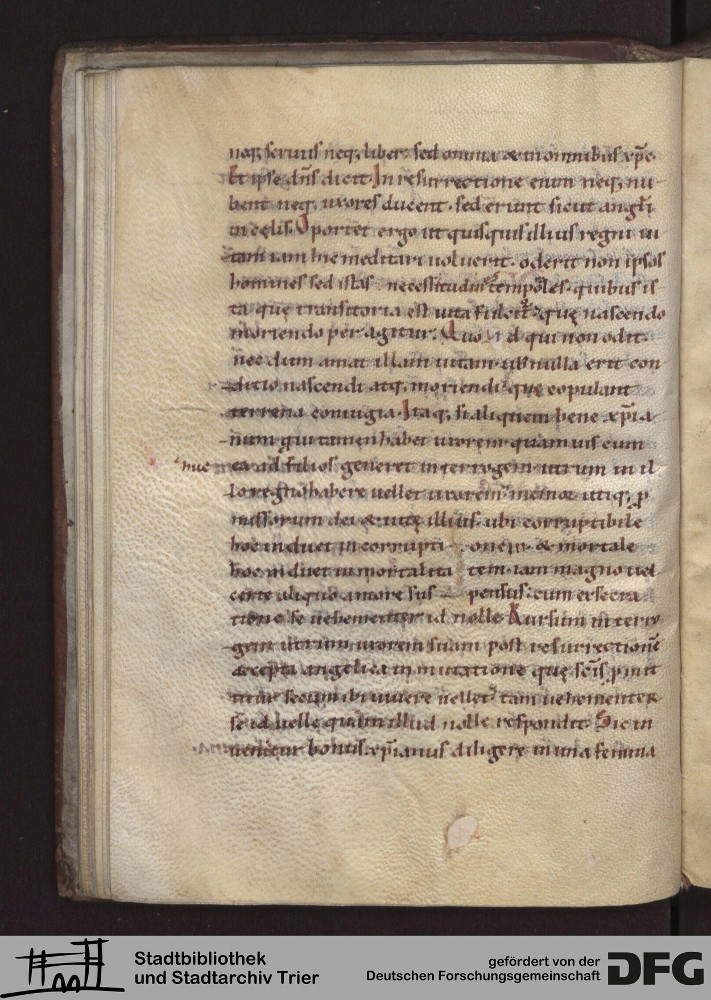 neq; seruus neq; liber; sed omnia & in omnibus xp̄c.
Et ipse dn̄s dicit. In resurrectione enim neq; nu
bent neq; uxores ducent. sed erunt sicut angl̄i
in cęlis. Oportet ergo ut quisquis illius regni ui
tam iam hic meditari uoluerit. oderit non ipsos
homines sed istas necessitudines temporales. quibus is
ta quę transitoria est uita fulcit² quę nascendo
moriendo peragitur. Quod qui non odit.
nec dum amat illam uitam ubi nulla erit con
ditio nascendi atq; moriendi quę copulant
terrena coniugia. Itaq; si aliquem bene xp̄ia
num qui tamen habet uxorem quamuis cum
huc ea ad filios generet interrogem utrum in il
lo regno habere uellet uxorem memor utiq; p
missorum dei & uitę illius. ubi corruptibile
hoc induet incorrupti onem. & mortale
hoc induet inmortalita tem. iam magno uel
certe aliquo amore sus pensus. cum exsecra
tione se uehementer id nolle. Rursum interro
gem utrum uxorem suam post resurrectionē
accepta angelica inmutatione quę sc̄is p̄mit
titur secum ibi uiuere uellet. tam uehementer
se id uelle quam illud nolle respondit. Sic in
uenitur bonus xp̄ianus diligere in una femina
Stadtbibliothek
und Stadtarchiv Trier
gefördert von der
Deutschen Forschungsgemeinschaft
DFG